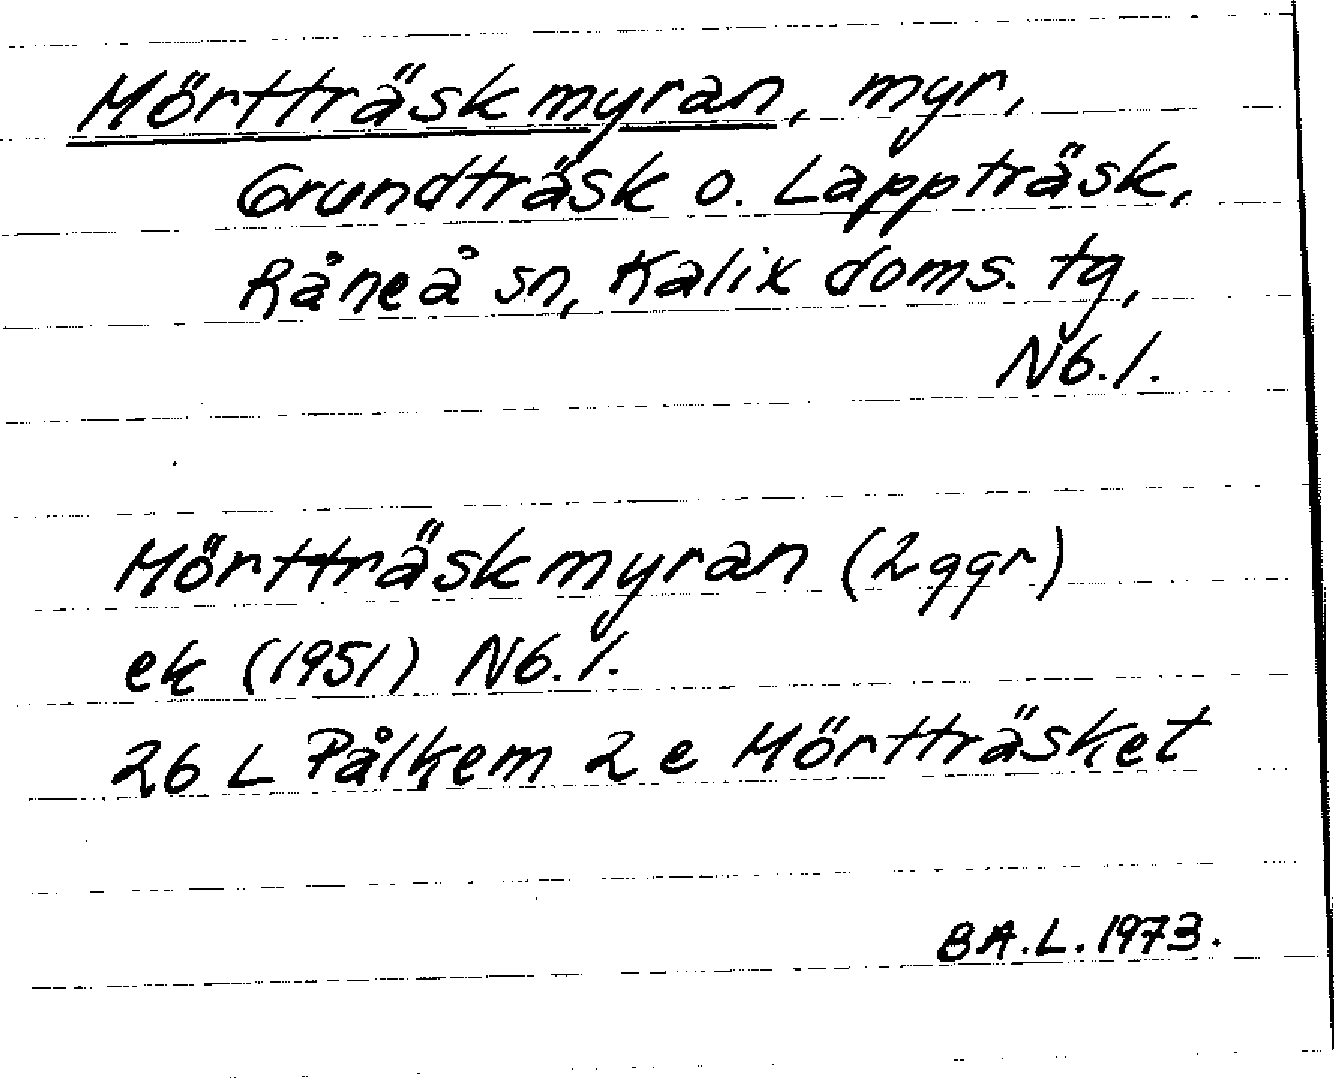 Mörtträskmyran, myr,
Grundträsk o. Lappträsk,
Råneå sn, Kalix doms. tg,
Nb. l.
Mörtträskmyran (2 ggr)
ek (1951) Nb. l.
26 L Pålkem 2 e Mörtträsket
BA. L. 1973.